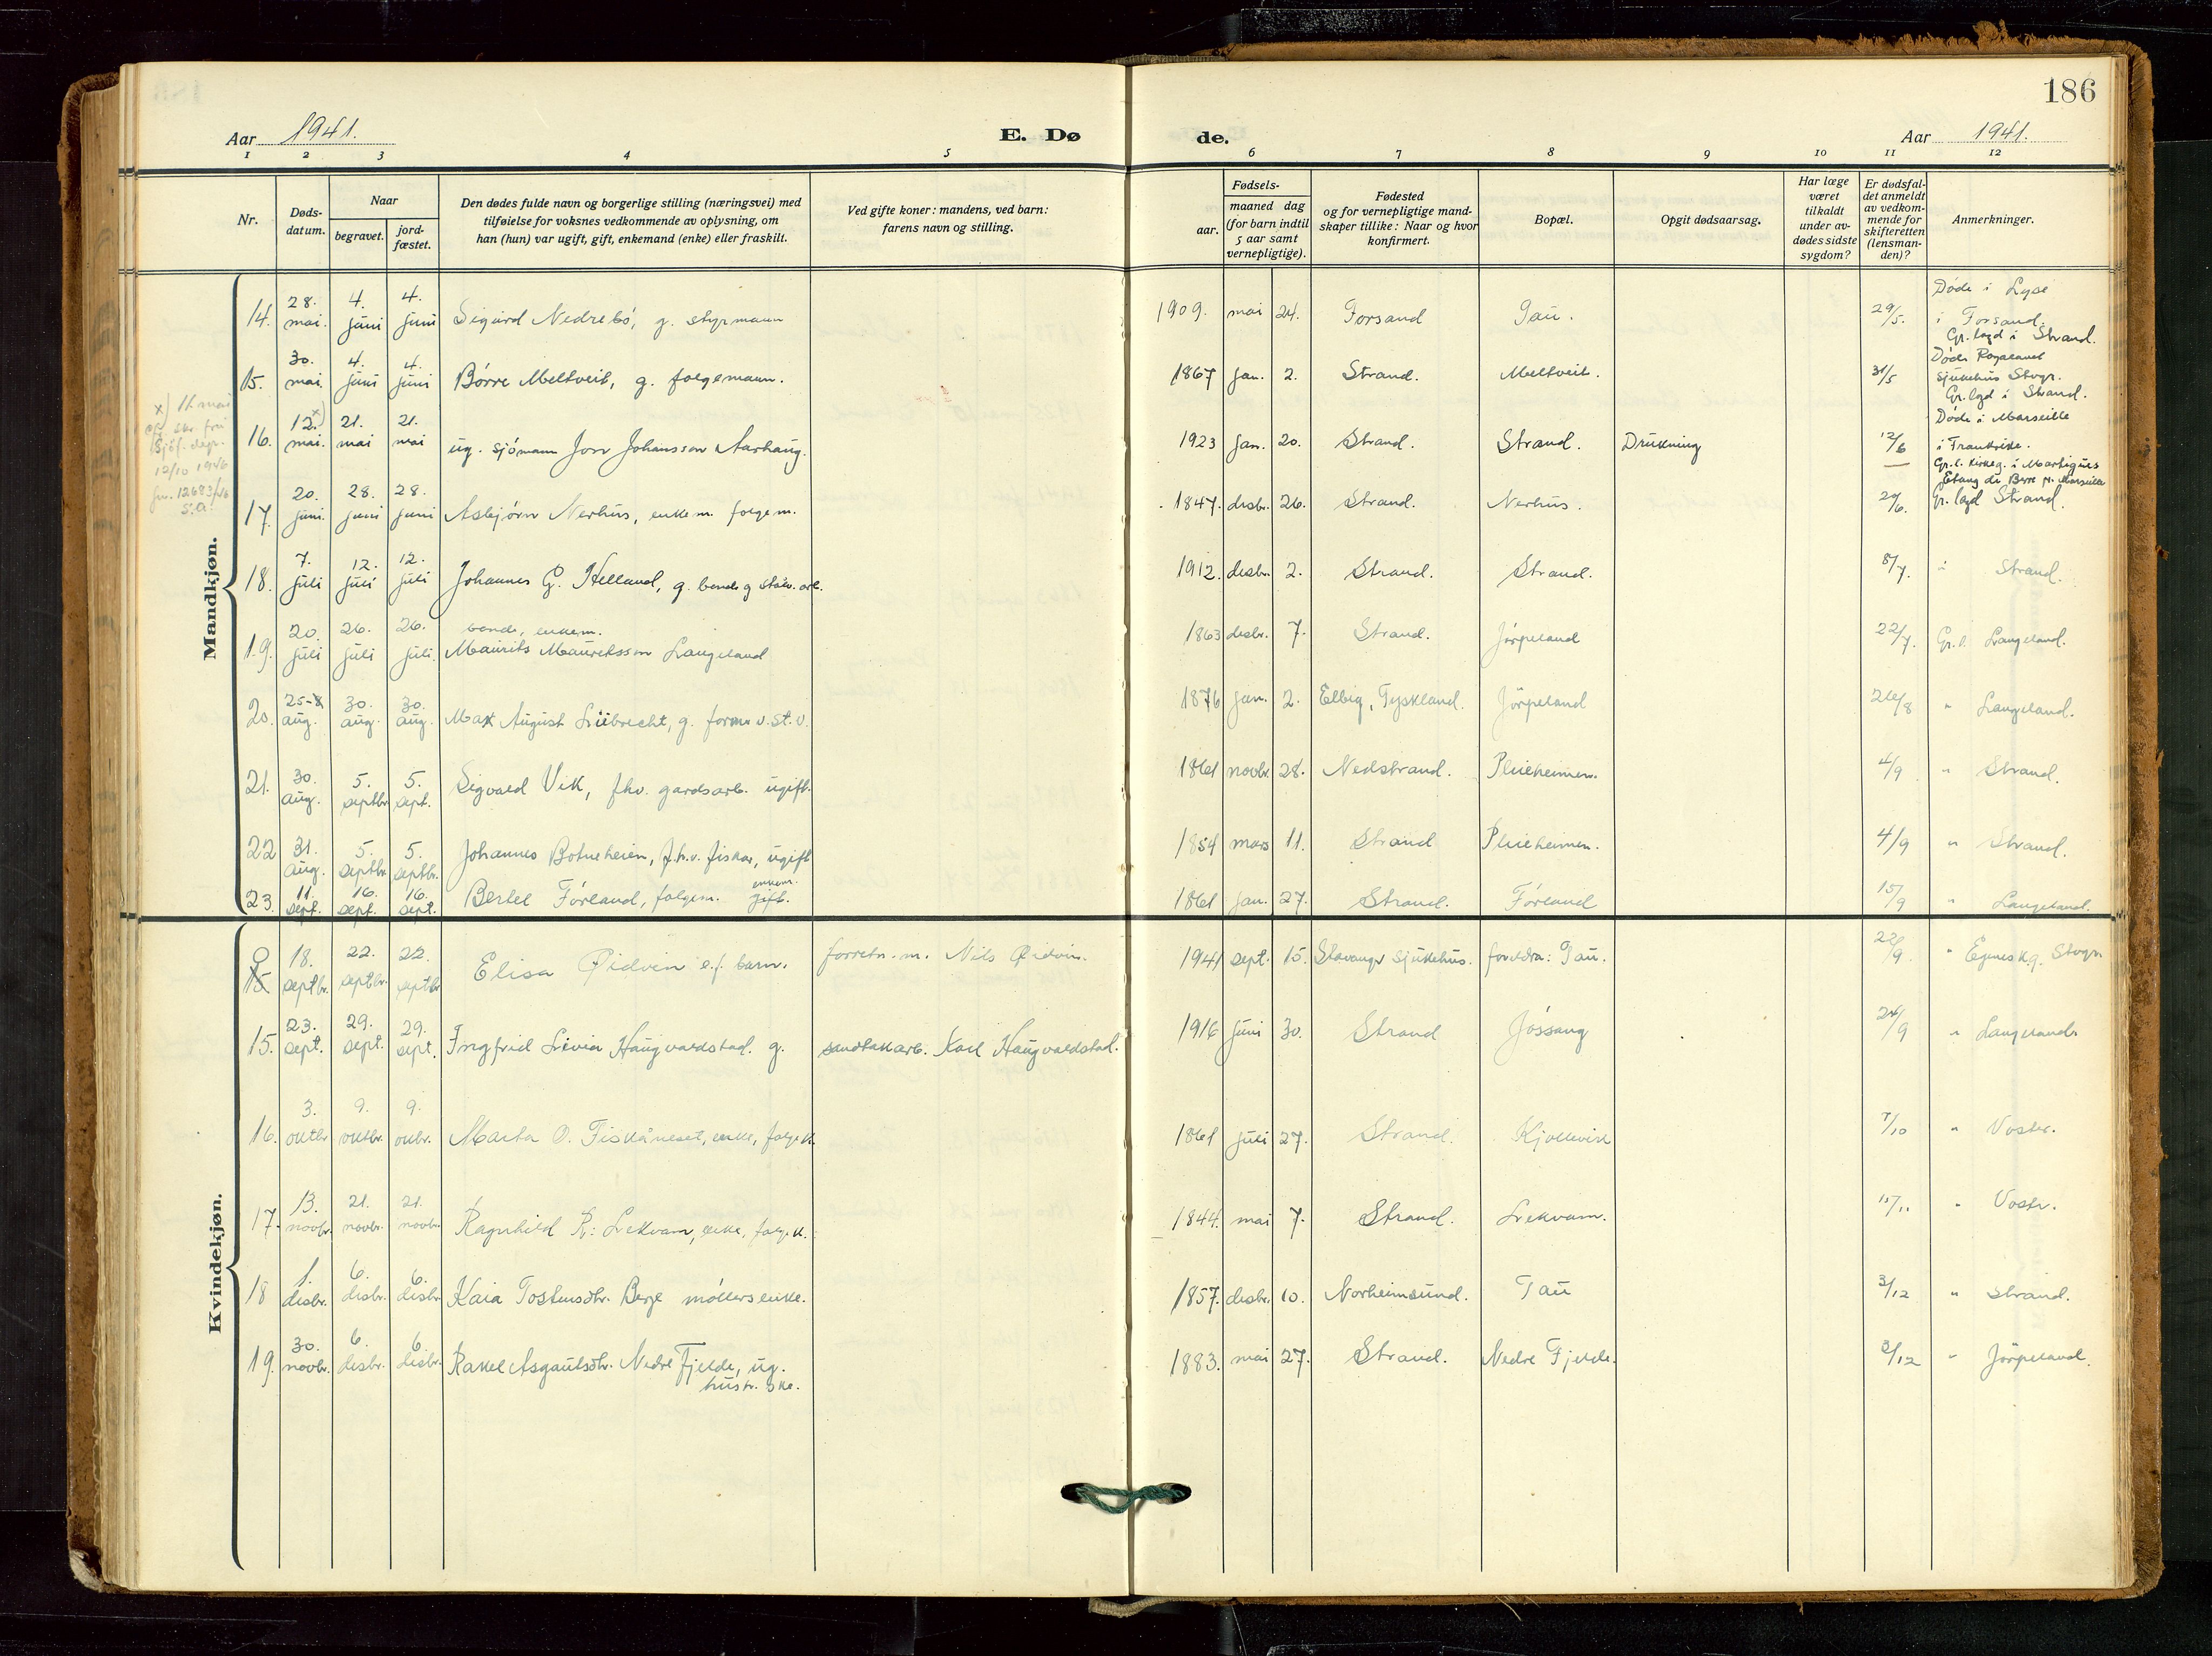 186
Aar 1941. E. Dø de. Aar 1941.
1 2 3 4 5 6 7 8 9 10 11 12
Nr.
Dødsdatum.
Naar
begravet.
jordfæstet.
Den dødes fulde navn og borgerlige stilling (næringsvei) med
tilføielse for voksnes vedkommende av oplysning, om
han (hun) var ugift, gift, enkemand (enke) eller fraskilt.
Ved gifte koner: mandens, ved barn:
farens navn og stilling.
Fødsels-
aar.
maaned dag
(for barn indtil
5 aar samt
vernepligtige).
Fødested
og for vernepligtige mand-
skaper tillike: Naar og hvor
konfirmert.
Bopæl.
Opgit dødsaarsag.
Har læge
været
tilkaldt
under av-
dødes sidste
sygdom?
Er dødsfal-
det anmeldt
av vedkom-
mende for
skifteretten
(lensman-
den)?
Anmerkninger.
Mandkjøn.
14. 28. mai. 4. juni 4. juni Sigurd Nedrebö, g. styrmann 1909. mai 24. Forsand Tau. 29/5. Döde i Lyse
i Forsand.
Gr.lagd i Strand.
15. 30. mai. 4. juni 4. juni Börre Meltveit, g. folgemann. 1867 jan. 2. Strand. Meltveit. 31/5 Döde Rogaland
sjukehus Stvgr.
Gr.lagd i Strand.
x) 11. mai
12/10 1946
16. 12. x) mai. 21. mai 21. mai ug. sjömann Jon Johansson Aarhaug. 1923 jan. 20. Strand. Strand. Drukning 12/6 Döde i Marseille
i Frankrike.
Gr.l. kirkeg. i Martigues
Etang de Berre pr. Marseille
17. 20. juni. 28. juni 28. juni Asbjörn Nerhus, enkem. folgem. 1847. desbr. 26. Strand. Nerhus. Gr. lagd Strand.
18. 7. juli 12. juli 12. juli Johannes G. Helland, g. bonde g stålv. arb. 1912. desbr. 2. Strand. Strand. 8/7. " Strand.
19. 20. juli 26. juli 26. juli. bonde, enkem.
Maurits Mauritsson Langeland 1863 desbr. 7. Strand. Jörpeland 22/7. Gr.l. Langeland.
20. 25-8 aug. 30. aug. 30. aug. Max August Lübrecht, g. formv. St.v. 1876 jan. 2. Elbig, Tyskland. Jörpeland 26/8 " Langeland.
21. 30. aug. 5. septbr. 5. sept. Sigvald Vik, fhv. gardsarb. ugift. 1861 novbr. 28. Nedstrand. Pleieheimen. 4/9 " Strand.
22 31. aug. 5. septbr. 5. septbr. Johannes Botneheien, f.h.v. fiskar, ugift 1854 mars 11. Strand Pleieheimen. 4/9 " Strand.
23. 11. sept. 16. sept. 16. sept. Bertel Förland, folgem. enkem. gift. 1861 jan. 27. Strand. Förland 15/9 " Langeland.
Kvindekjøn.
0 15 18. septbr. 22. septbr. 22. septbr Elisa Øidvin e.f. barn. forretn.m. Nils Øidvin. 1941 sept. 15. Stavanger sjukehus. foreldra: Tau. 22/9. " Egenes k.g. Stvgr.
15. 23. sept. 29. sept. 29. sept. Ingfrid Livia Haugvaldstad. g. sandtakarb. Karl Haugvaldstad. 1916 juni 30. Strand Jössang 24/9 " Langeland.
16. 3. oktbr 9. oktbr. 9. okbr. Marta O. Fiskåneset, enke, folgek. 1861 juli 27. Strand. Kjollevik 7/10 " Vostr.
17. 13. novbr. 21. novbr. 21. novbr. Ragnhild R: Lekvam, enke, folgek. 1844. mai 7. Strand. Lekvam. 15/11 " Vostr.
18 1. desbr. 6. desbr. 6. desbr. Kaia Tostensdtr. Berge möllers enke. 1857. desbr. 10. Norheimsund. Tau 3/12 " Strand.
19. 30. novbr. 6. desbr. 6. desbr. Rakel Asgautsdtr. Nedre Fjelde, ug.
hustr. ske. 1883. mai 27. Strand. Nedre Fjelde. 2/12 " Jörpeland.